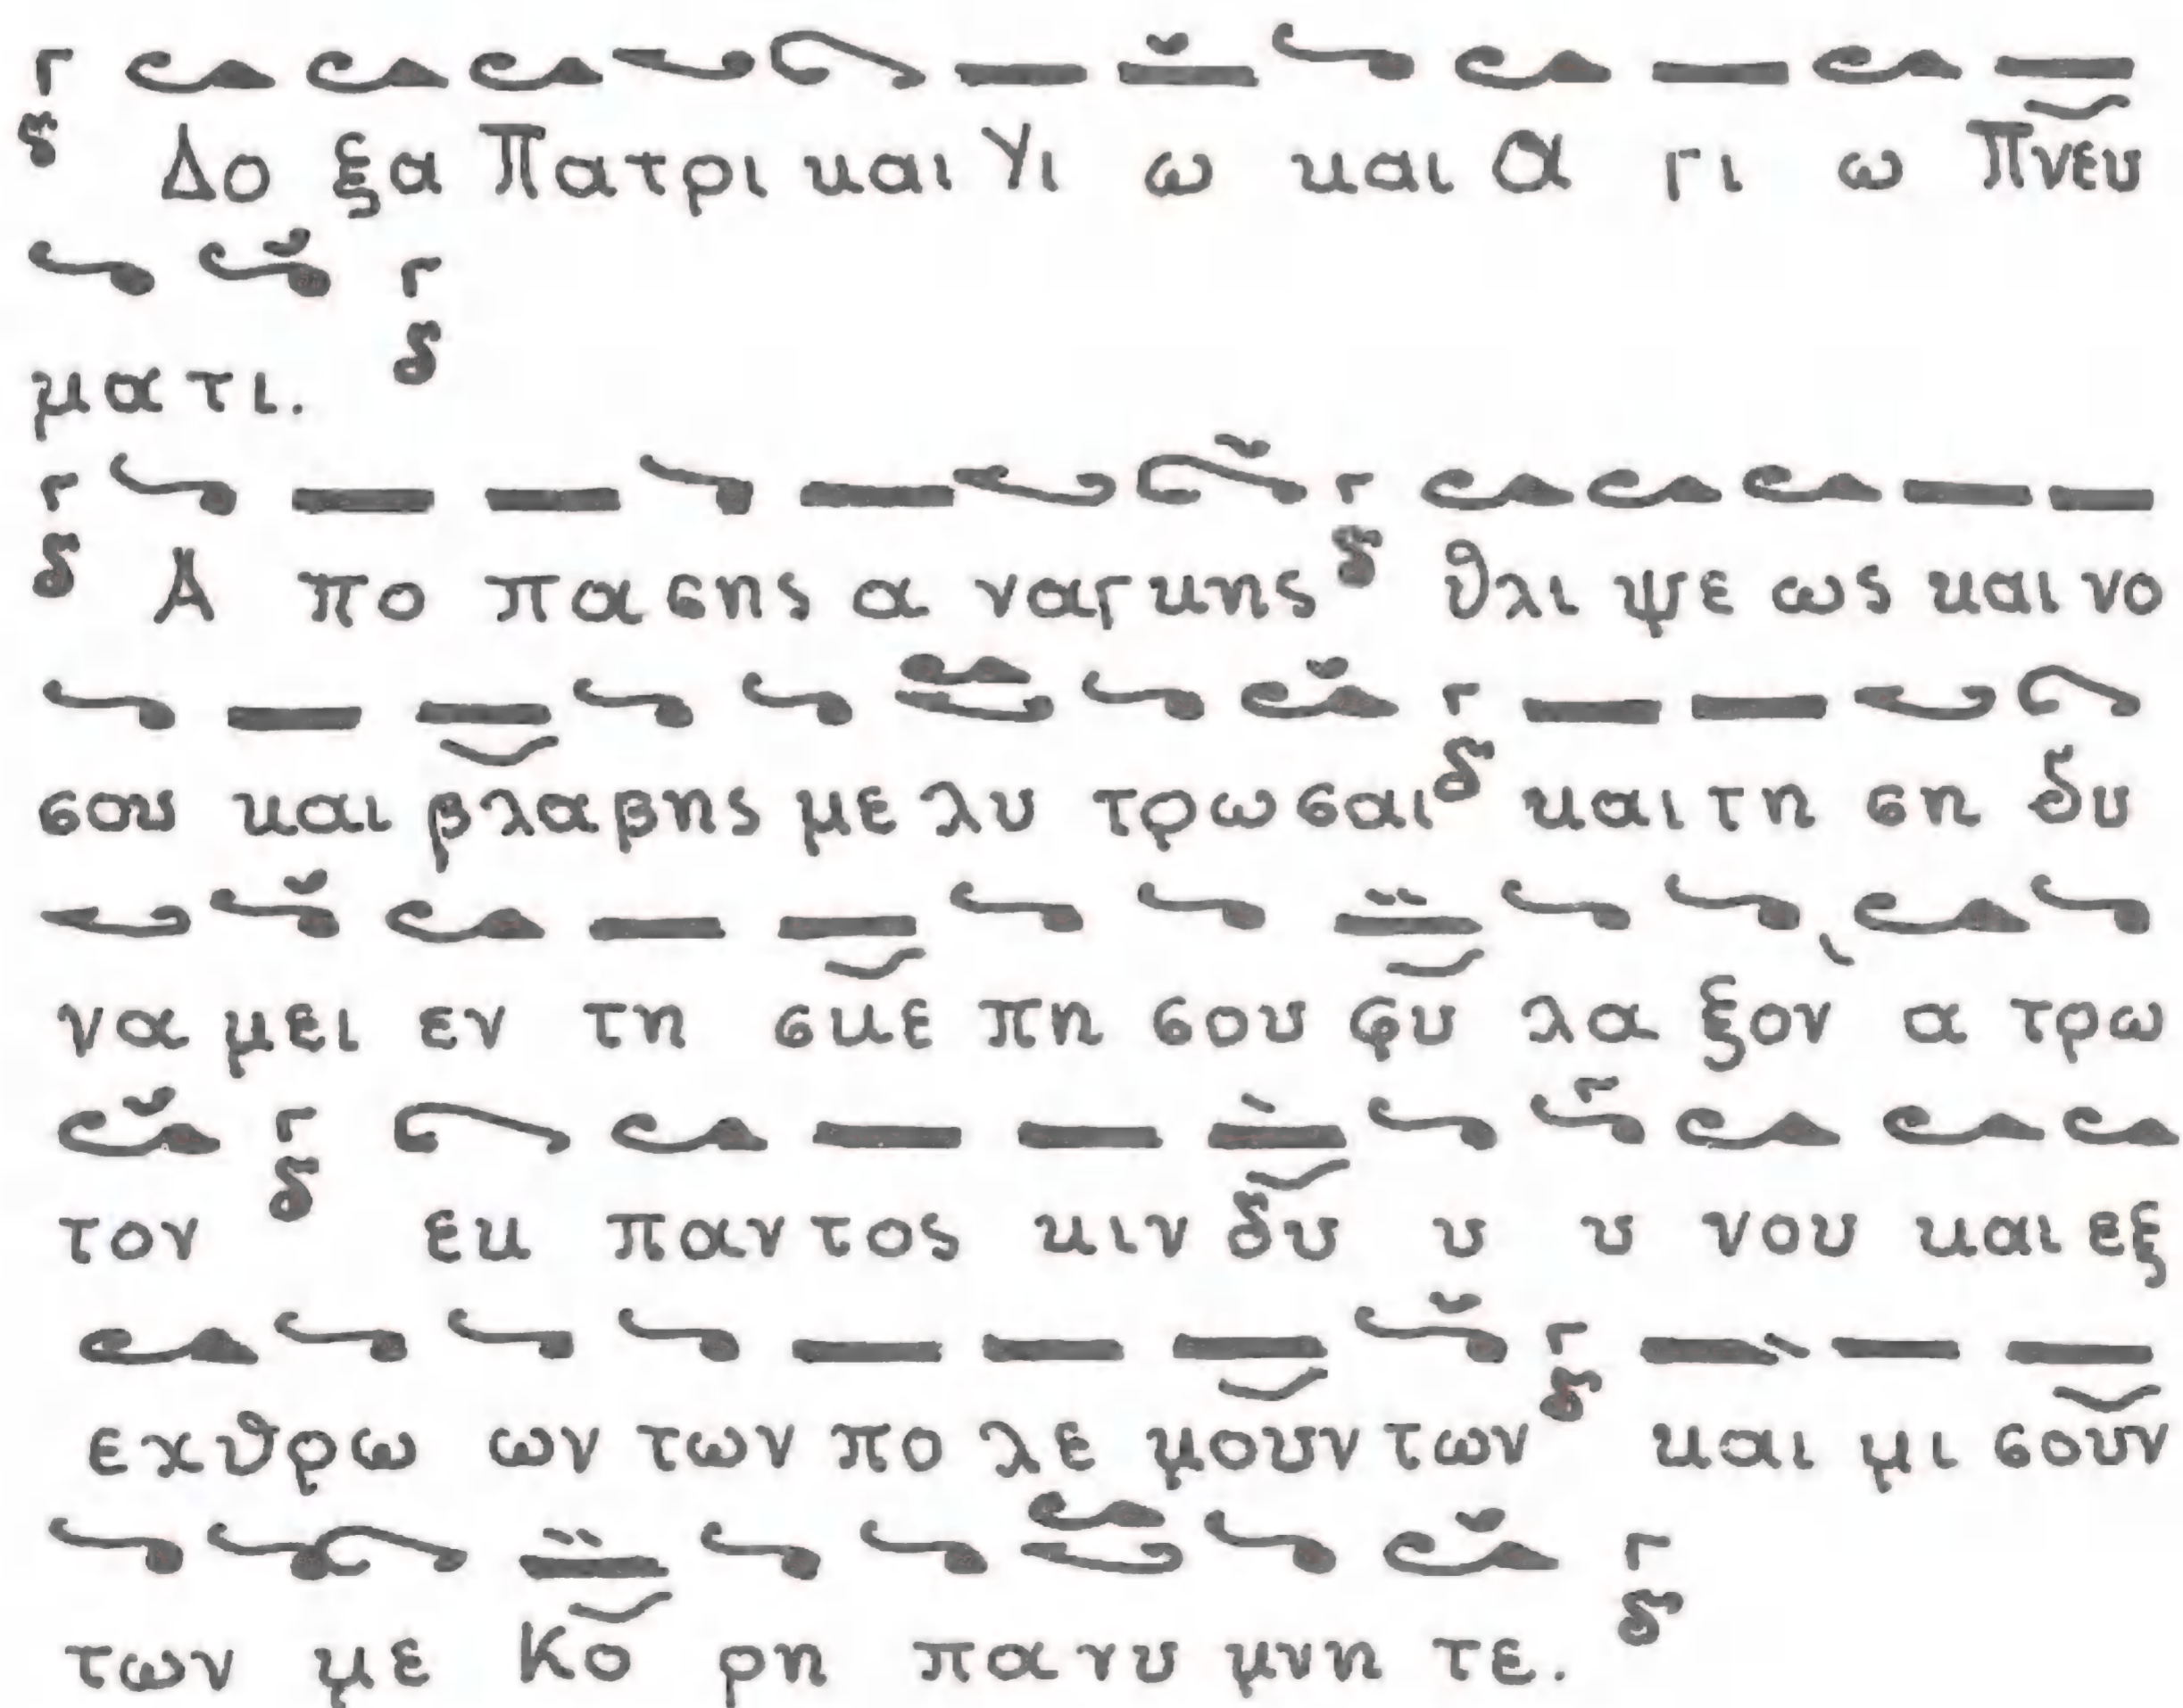 Δο ξα Πατρι και Υι ω και Α γι ω Πνευ
μα τι.
Α πο πα σης α ναγ κης θλι ψε ως και νο
σου και βλα βης με λυ τρω σαι και τη ση δυ
να μει εν τη σκε πη σου φυ λα ξον α τρω
τον εκ παν τος κιν δυ υ υ νου και εξ
εχθρω ων των πο λε μουν των και μι σουν
των με Κο ρη παν υ μνη τε.